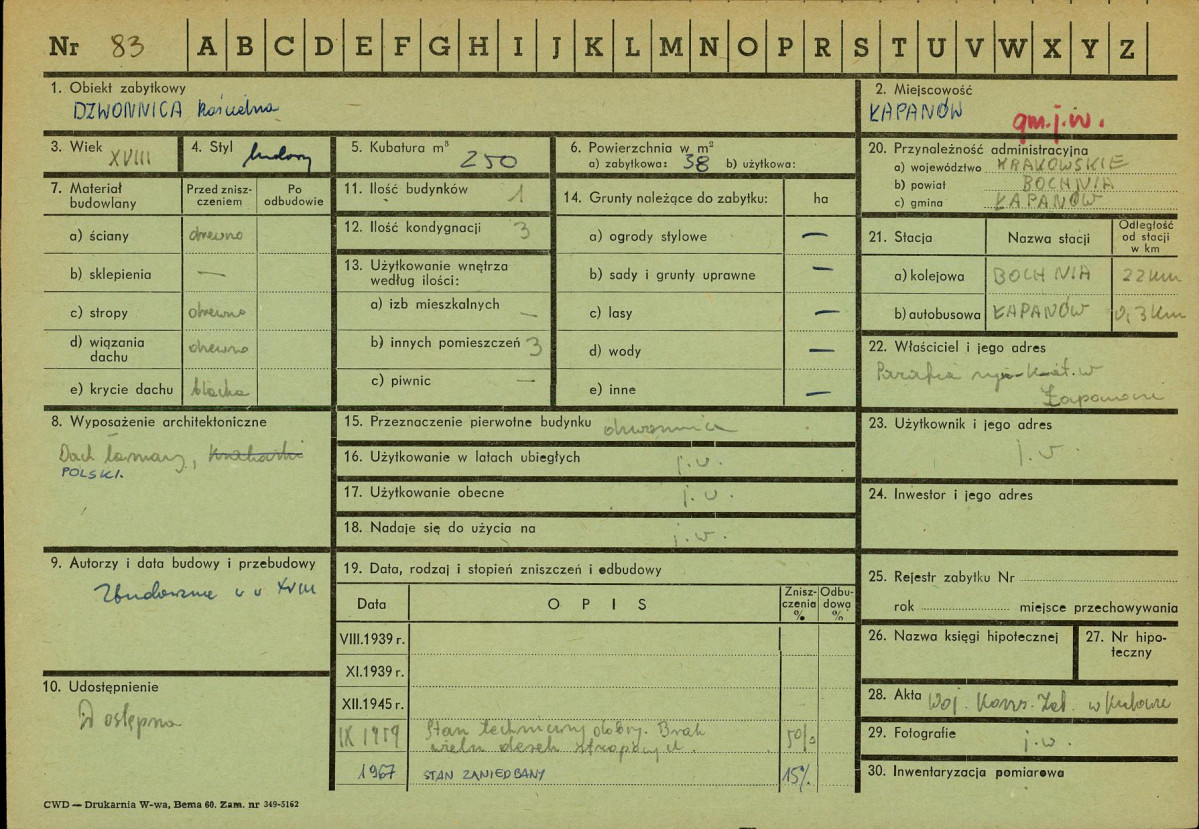 Nr 83 A B C D E F G H I J K L M N O P R S T U V W X Y Z
1. Obiekt zabytkowy
DZWONNICA kościelna
2. Miejscowość
ŁAPANÓW
gm.j.w.
3. Wiek XVIII
4. Styl ludowy
5. Kubatura m³ 250
6. Powierzchnia w m²
a) zabytkowa: 38 b) użytkowa:
20. Przynależność administracyjna
a) województwo KRAKOWSKIE
b) powiat BOCHNIA
c) gmina ŁAPANÓW
7. Materiał budowlany
Przed zniszczeniem
Po odbudowie
a) ściany drewno
b) sklepienia —
c) stropy drewno
d) wiązania dachu drewno
e) krycie dachu blacha
11. Ilość budynków 1
12. Ilość kondygnacji 3
13. Użytkowanie wnętrza
według ilości:
a) izb mieszkalnych —
b) innych pomieszczeń 3
c) piwnic —
14. Grunty należące do zabytku: ha
a) ogrody stylowe —
b) sady i grunty uprawne —
c) lasy —
d) wody —
e) inne —
21. Stacja Nazwa stacji Odległość od stacji w km
a) kolejowa BOCHNIA 22 km
b) autobusowa ŁAPANÓW 0,3 km
22. Właściciel i jego adres
Parafia rzym-kat. w
Łapanowie
8. Wyposażenie architektoniczne
Dach łamany, krakowski
POLSKI.
15. Przeznaczenie pierwotne budynku dzwonnica
16. Użytkowanie w latach ubiegłych j.w.
17. Użytkowanie obecne j.w.
18. Nadaje się do użycia na j.w.
23. Użytkownik i jego adres
j.w.
24. Inwestor i jego adres
9. Autorzy i data budowy i przebudowy
Zbudowana w w XVIII
10. Udostępnienie
Dostępna
19. Data, rodzaj i stopień zniszczeń i odbudowy
Data OPIS Zniszczenia % Odbudowa %
VIII.1939 r.
XI.1939 r.
XII.1945 r.
IX 1959 Stan techniczny dobry. Brak
wielu desek okapowych. 50%
1967 STAN ZANIEDBANY 15%
25. Rejestr zabytku Nr
rok miejsce przechowywania
26. Nazwa księgi hipotecznej
27. Nr hipoteczny
28. Akta Woj. Kons. Zab. w Krakowie
29. Fotografie j.w.
30. Inwentaryzacja pomiarowa
CWD — Drukarnia W-wa, Bema 60. Zam. nr 349-5162